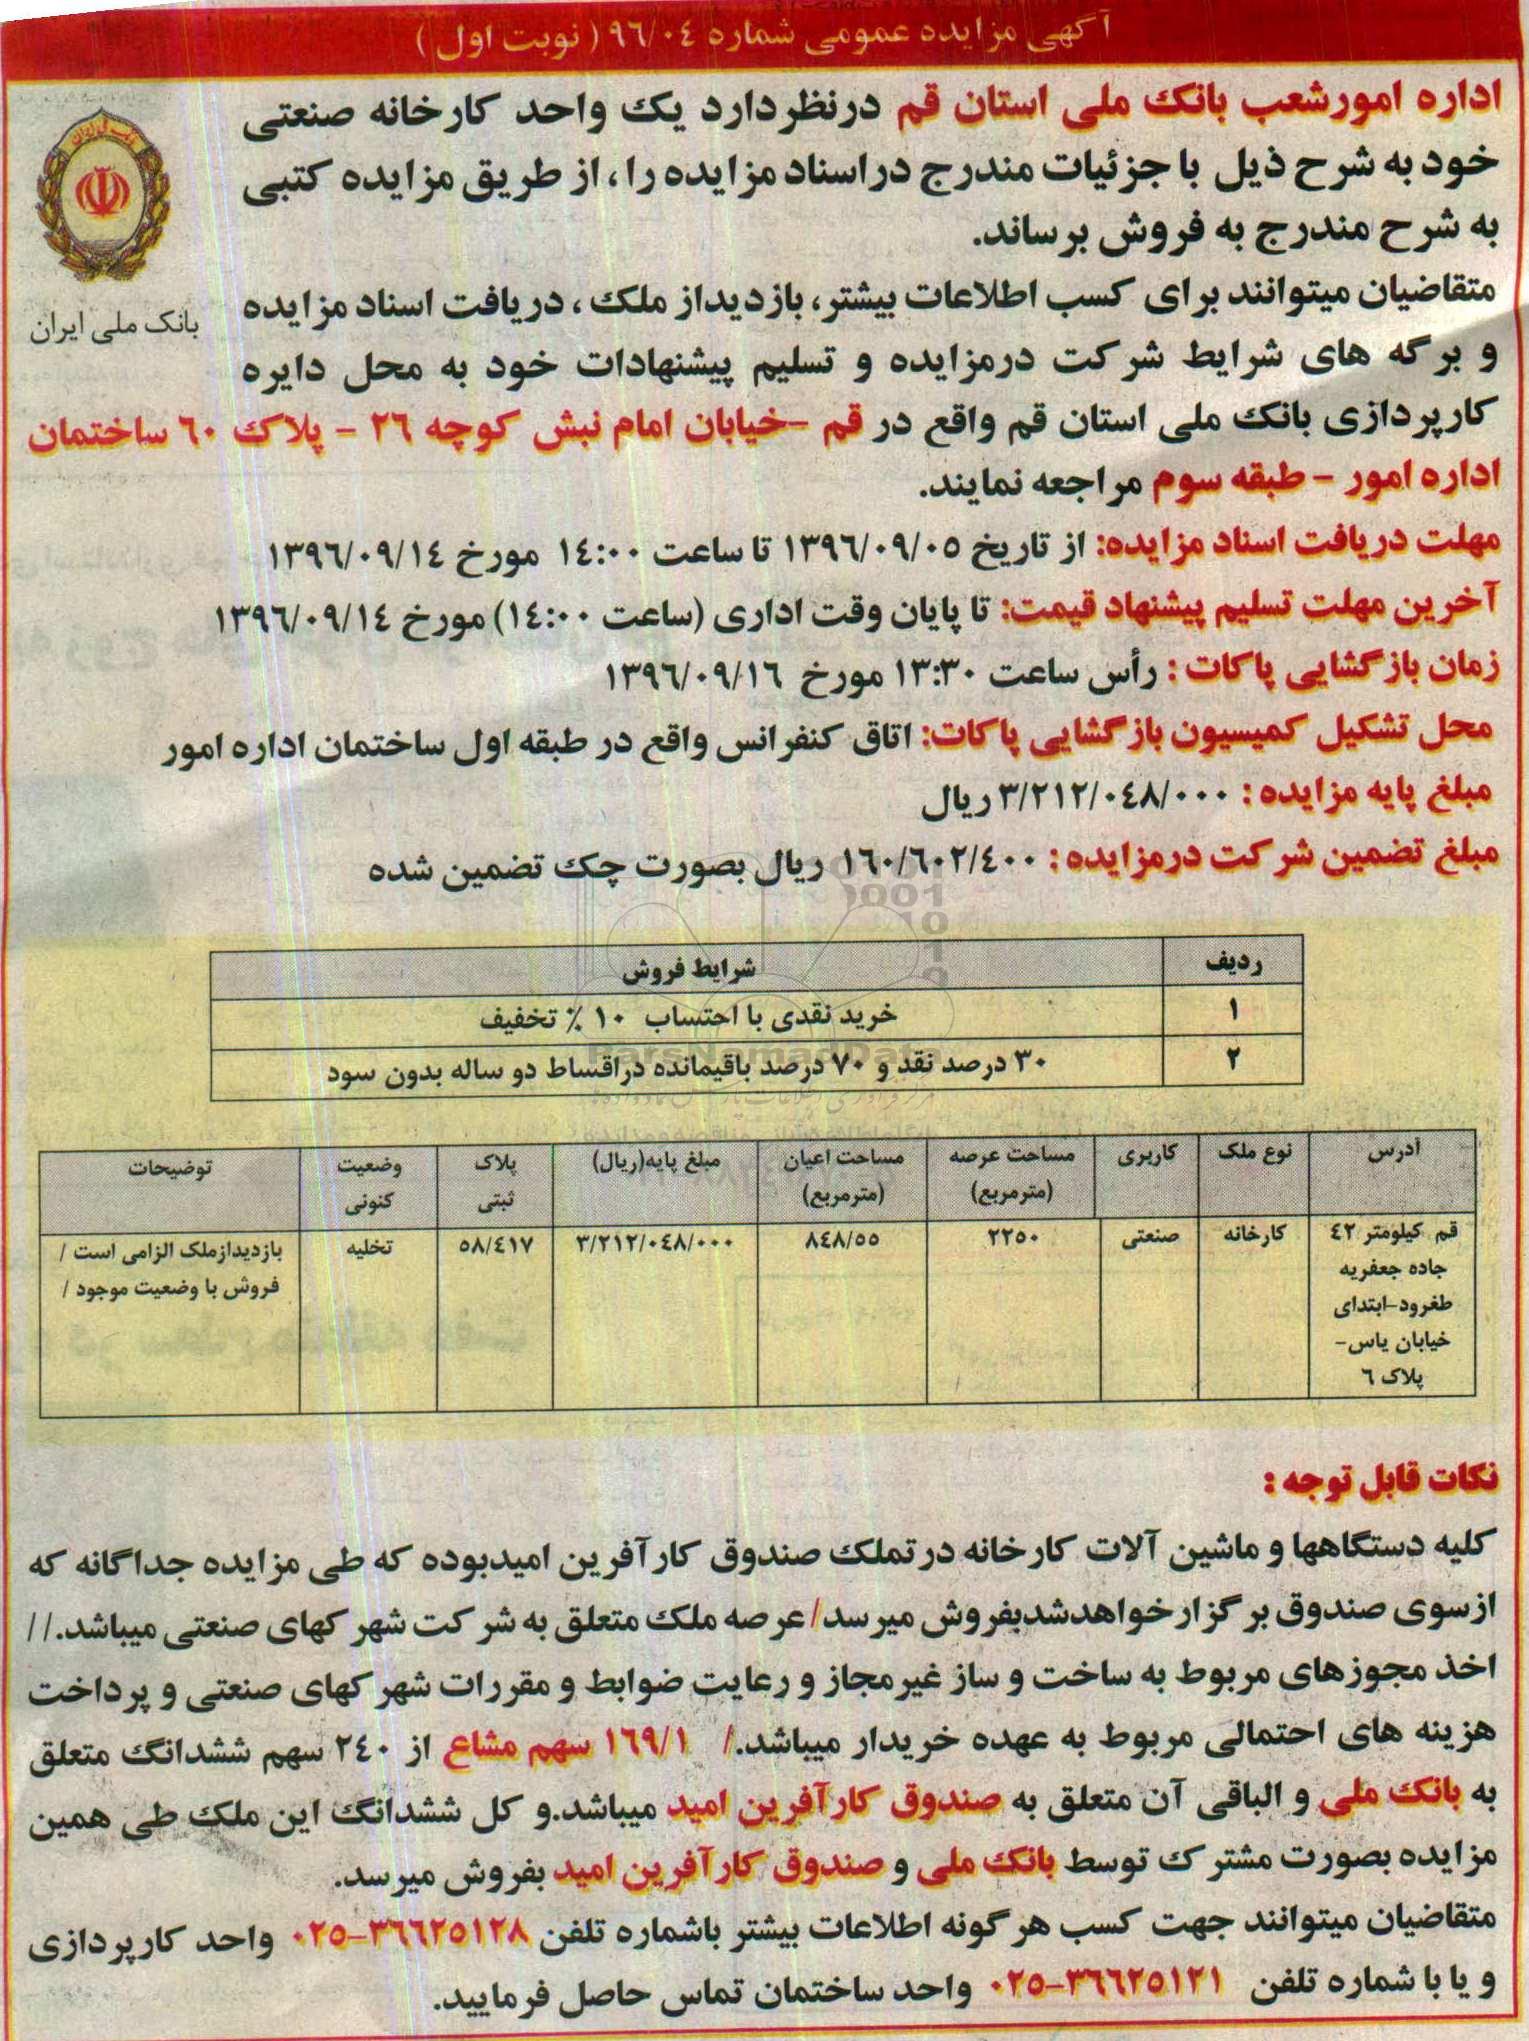 آگهی مزایده عمومی شماره ٩٦/٠٤ ( نوبت اول )
اداره امورشعب بانک ملی استان قم درنظردارد یک واحد کارخانه صنعتی
خود به شرح ذیل با جزئیات مندرج دراسناد مزایده را، از طریق مزایده کتبی
به شرح مندرج به فروش برساند.
بانک ملی ایران
متقاضیان میتوانند برای کسب اطلاعات بیشتر، بازدیداز ملک ، دریافت اسناد مزایده
و برگه های شرایط شرکت درمزایده و تسلیم پیشنهادات خود به محل دایره
کارپردازی بانک ملی استان قم واقع در قم -خیابان امام نبش کوچه ٢٦ - پلاک ٦٠ ساختمان
اداره امور - طبقه سوم مراجعه نمایند.
مهلت دریافت اسناد مزایده: از تاریخ ١٣٩٦/٠٩/٠٥ تا ساعت ١٤:٠٠ مورخ ١٣٩٦/٠٩/١٤
آخرین مهلت تسلیم پیشنهاد قیمت: تا پایان وقت اداری (ساعت ١٤:٠٠) مورخ ١٣٩٦/٠٩/١٤
زمان بازگشایی پاکات : رأس ساعت ١٣:٣٠ مورخ ١٣٩٦/٠٩/١٦
محل تشکیل کمیسیون بازگشایی پاکات: اتاق کنفرانس واقع در طبقه اول ساختمان اداره امور
مبلغ پایه مزایده : ٣/٢١٢/٠٤٨/٠٠٠ ریال
مبلغ تضمین شرکت درمزایده : ١٦٠/٦٠٢/٤٠٠ ریال بصورت چک تضمین شده
ردیف شرایط فروش
١ خرید نقدی با احتساب ١٠ ٪ تخفیف
٢ ٣٠ درصد نقد و ٧٠ درصد باقیمانده دراقساط دو ساله بدون سود
ParsNamadData
آدرس نوع ملک کاربری مساحت عرصه (مترمربع) مساحت اعیان (مترمربع) مبلغ پایه(ریال) پلاک ثبتی وضعیت کنونی توضیحات
قم کیلومتر ٤٢ کارخانه صنعتی ٢٢٥٠ ٨٤٨/٥٥ ٣/٢١٢/٠٤٨/٠٠٠ ٥٨/٤١٧ تخلیه بازدیدازملک الزامی است /
جاده جعفریه فروش با وضعیت موجود /
طغرود-ابتدای
خیابان یاس-
پلاک ٦
نکات قابل توجه :
کلیه دستگاهها و ماشین آلات کارخانه درتملک صندوق کارآفرین امیدبوده که طی مزایده جداگانه که
ازسوی صندوق برگزارخواهدشدبفروش میرسد/ عرصه ملک متعلق به شرکت شهرکهای صنعتی میباشد.//
اخذ مجوزهای مربوط به ساخت و ساز غیرمجاز و رعایت ضوابط و مقررات شهرکهای صنعتی و پرداخت
هزینه های احتمالی مربوط به عهده خریدار میباشد./ ١٦٩/١ سهم مشاع از ٢٤٠ سهم ششدانگ متعلق
به بانک ملی و الباقی آن متعلق به صندوق کارآفرین امید میباشد.و کل ششدانگ این ملک طی همین
مزایده بصورت مشترک توسط بانک ملی و صندوق کارآفرین امید بفروش میرسد.
متقاضیان میتوانند جهت کسب هرگونه اطلاعات بیشتر باشماره تلفن ٣٦٦٢٥١٢٨-٠٢٥ واحد کارپردازی
و یا با شماره تلفن ٣٦٦٢٥١٢١-٠٢٥ واحد ساختمان تماس حاصل فرمایید.